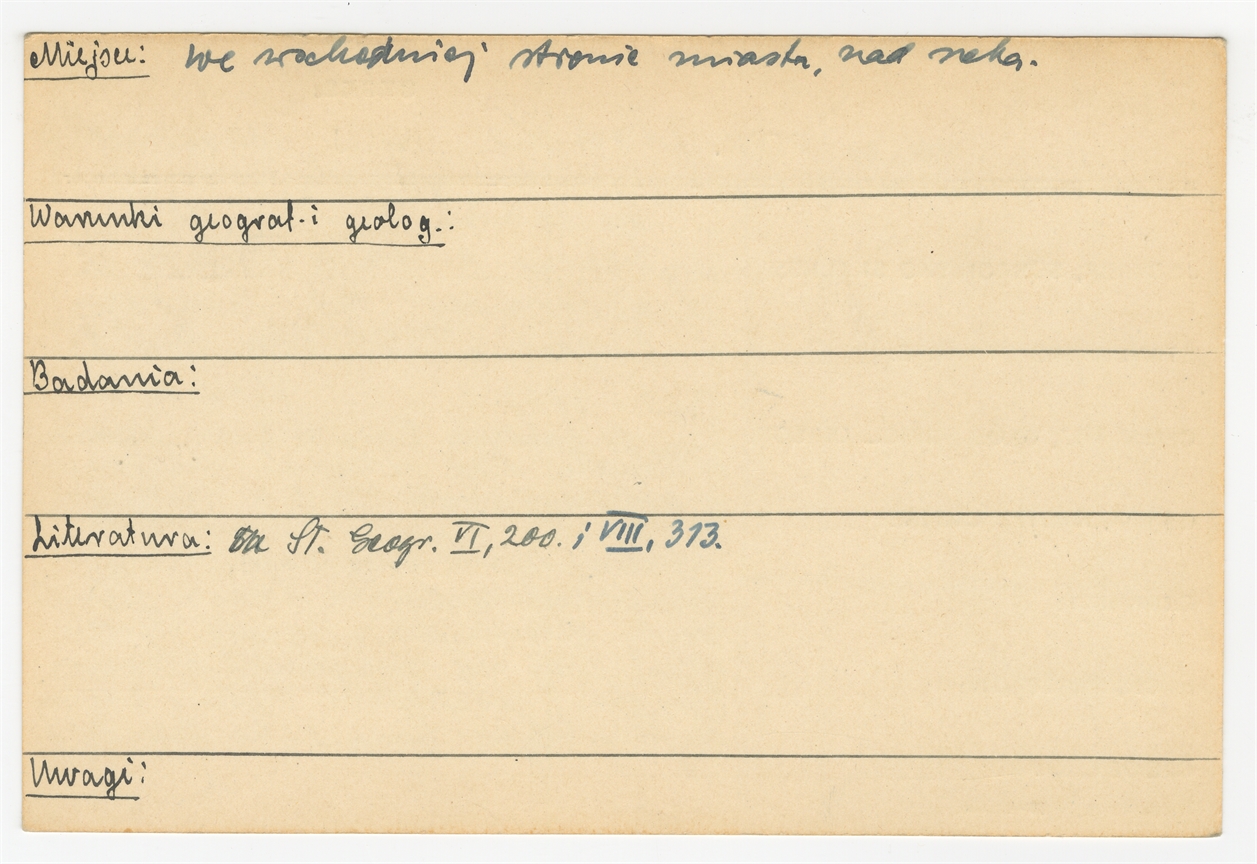 Miejsce: we wschodniej stronie miasta, nad rzeką.
Warunki geograf. i geolog.:
Badania:
Literatura: Sł. Geogr. VI, 200. i VIII, 313.
Uwagi: